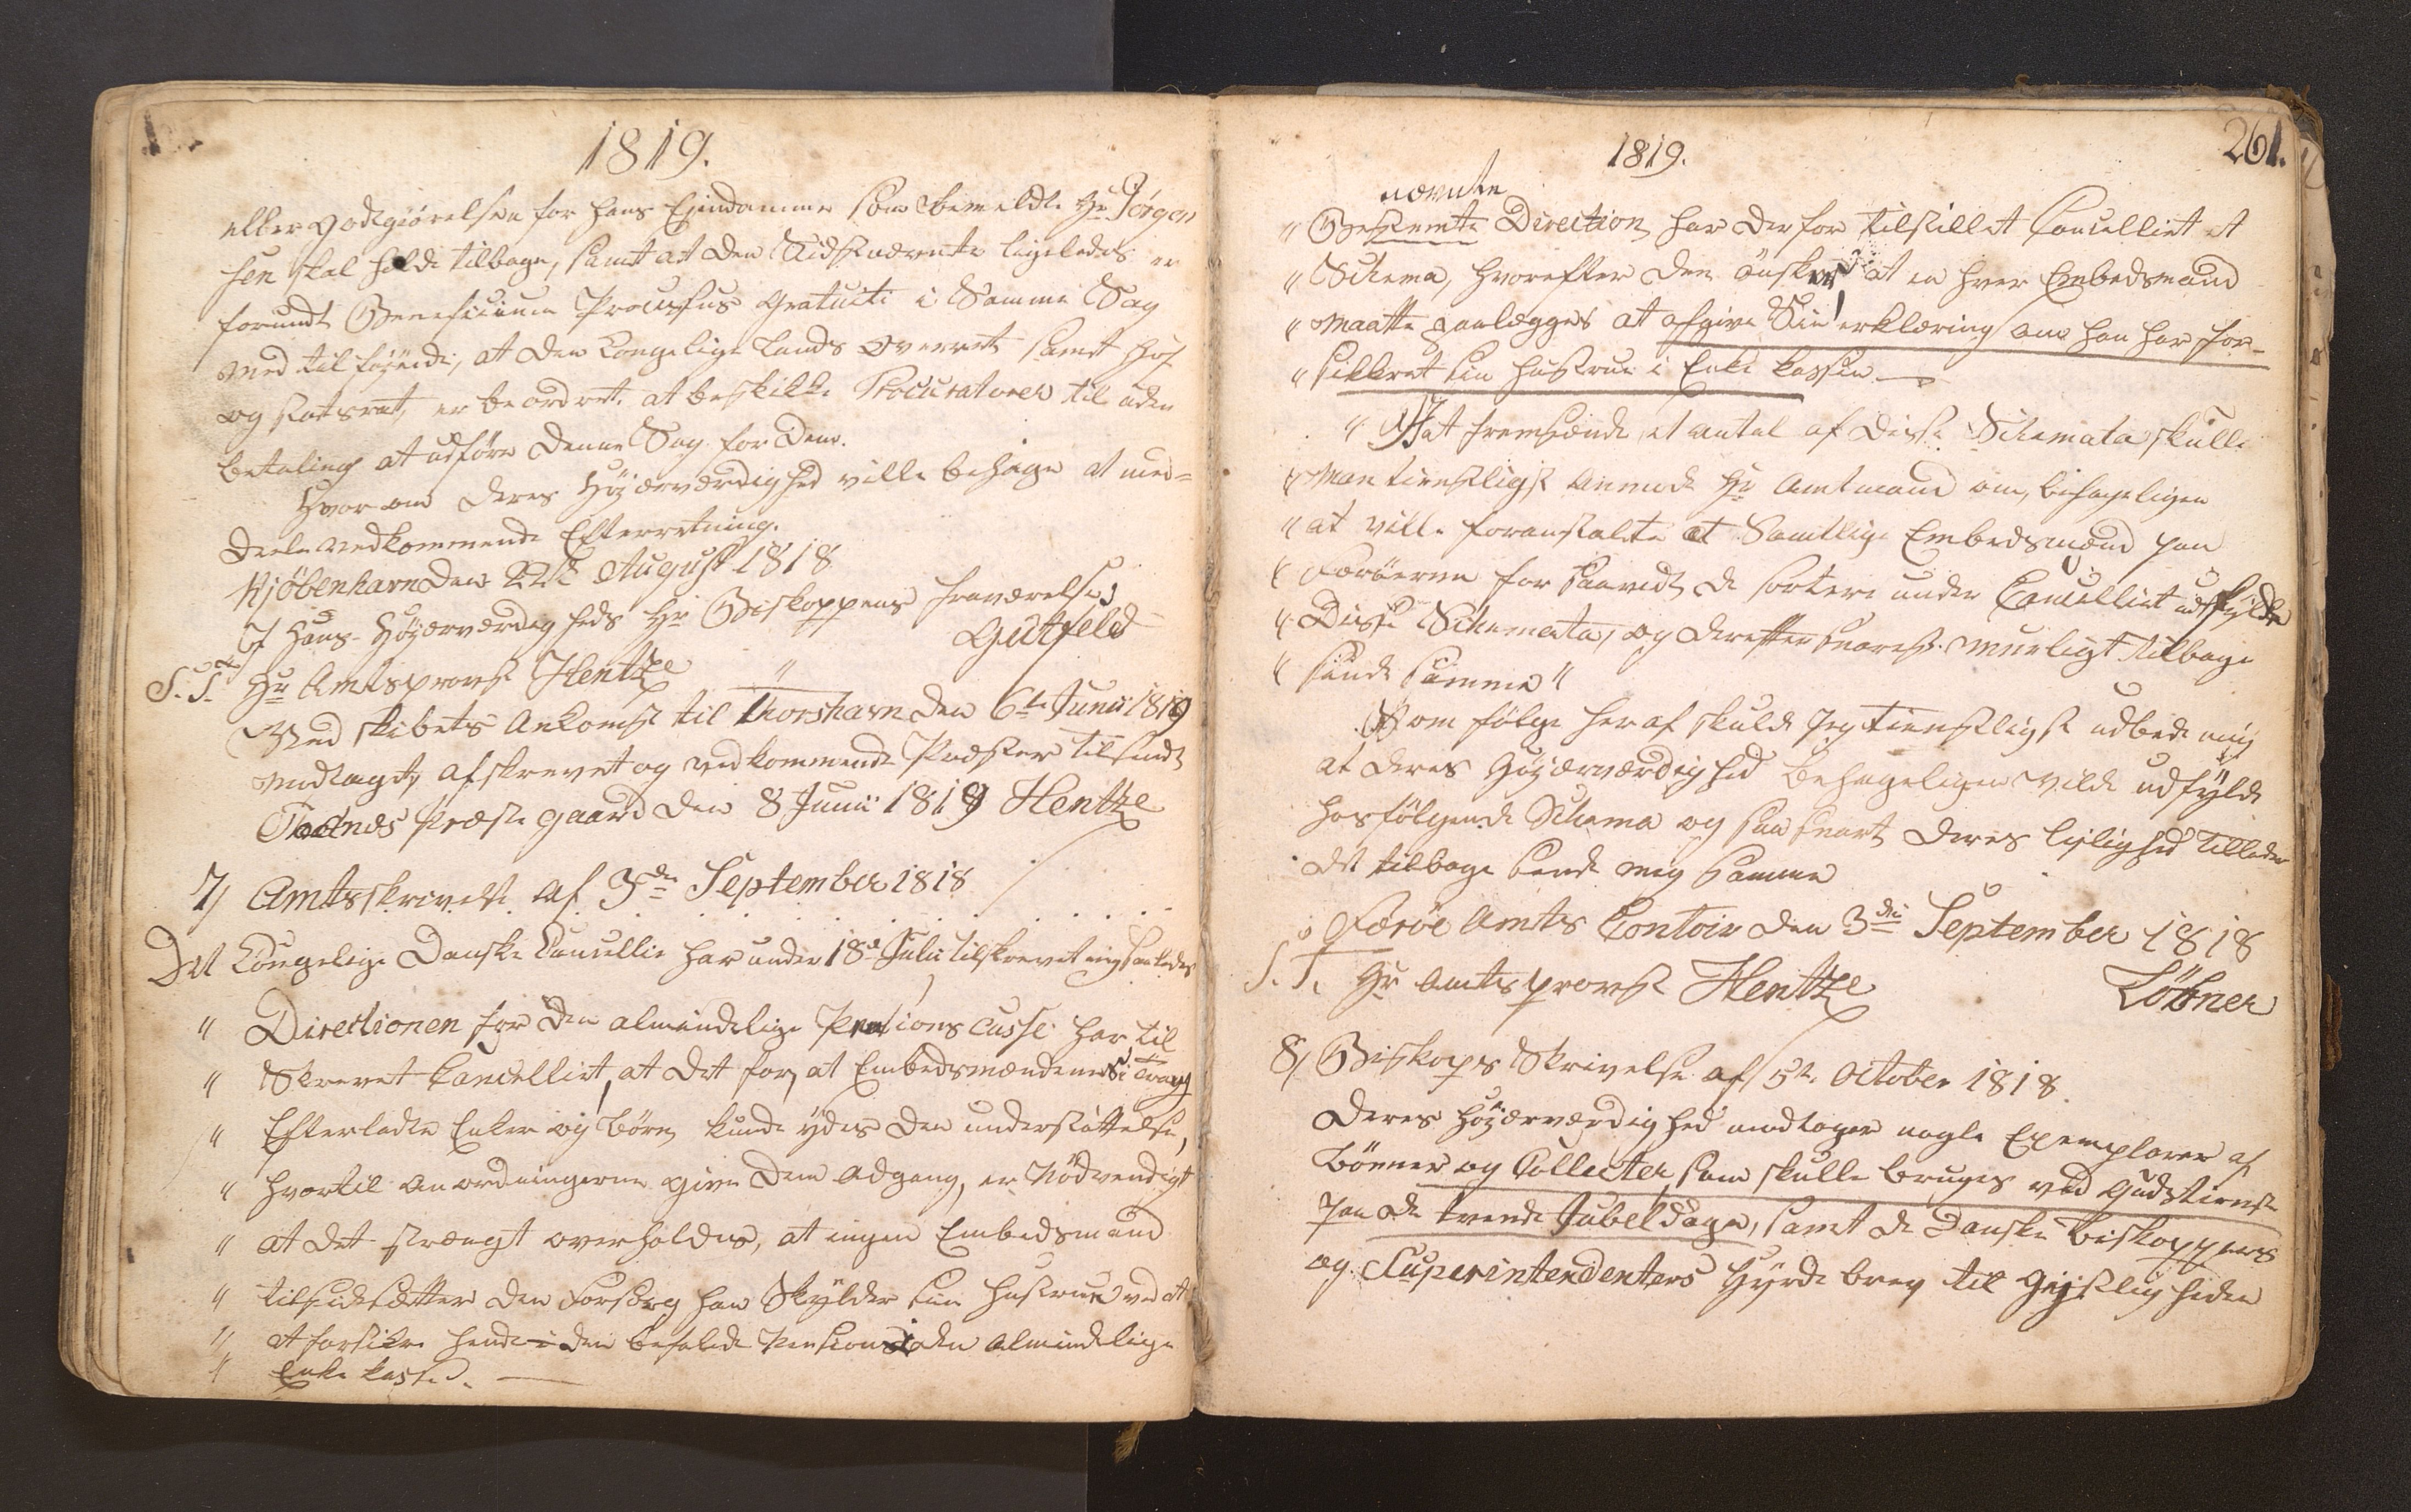 1819.
eller godtgiørelsen for hans Ejendomme som bemeldte Hr Jörgen
sen skal holde tilbage, samt at den Sidstnævnte ligeledes er
forundt Beneficium Processus gratuiti i Samme Sag
med tilføjende, at den Kongelige Lands Overret samt Høj
og Statsret, er beordret at beskikke Procuratorer til uden
betaling at udføre denne Sag for dem.
Hvorom Deres Højærværdighed ville behage at med=
deele vedkommende Efterretning.
Kjöbenhavn den 22de August 1818
I Hans Højærværdigheds Hr Biskoppens fraværelse
Gutfeld
S. T. Hr Amtsprovst Hentze
Med skibets Ankomst til Thorshavn den 6te Junii 1819
modtaget, afskrevet og vedkommende Præster tilsendt
Næs Præstegaard den 8 Junii 1819 Hentze
7) Amtsskrivelse af 3de September 1818
Det Kongelige Danske Cancellie har under 18de Julii tilskrevet mig saaledes
" Directionen for den almindelige Pensions Casse har til
" Skrevet Cancelliet, at det for, at Embedsmændenes i Trang
" Efterladte Enker og Börn kunde ydes den understøttelse,
" hvortil anordningerne give dem adgang, er Nödvendigt
" at det strængt overholdes, at ingen Embedsmand
" tilsidesætter den Forsorg han Skylder sin hustrue ved at
" at forsikre hende i den befalede Pension i den almindelige
" Enke Kasse.
1819.
261.
nævnte
" Bestemte Direction har derfor tilstillet Cancelliet et
" Schema, hvorefter den önsker at en hver Embedsmand
" maatte paalægges at afgive Sin erklæring om han har for-
" sikkret sin hustrue i Enke kassen
" Ved at fremsende et antal af disse Schemata skulle
" Man tienstligst anmode Hr Amtmand om, behageligen
" at ville foranstalte at Samtlige Embedsmænd paa
" Færöerne for saavidt de sortere under Cancelliet udfylde
" Disse Schemata, og derefter snarest mueligt tilbage
" sende Samme "
Som følge heraf skulde jeg tienstligst udbede mig
at Deres Højærværdighed behageligen vilde udfylde
hosfölgende Schema og saa snart Deres lejlighed tillader
det tilbage sende mig Samme
Færöe Amts Contoir den 3die September 1818
S. T. Hr Amtsprovst Hentze
Löbner
8) Biskops Skrivelse af 5te October 1818
Deres Højærværdighed modtager nogle Exemplarer af
Bönner og Collecter, som skulle bruges ved Gudstieneste
paa de tvende Jubeldage, samt de Danske Biskoppers
og Superintendenters Hyrde brev til Gejstligheden